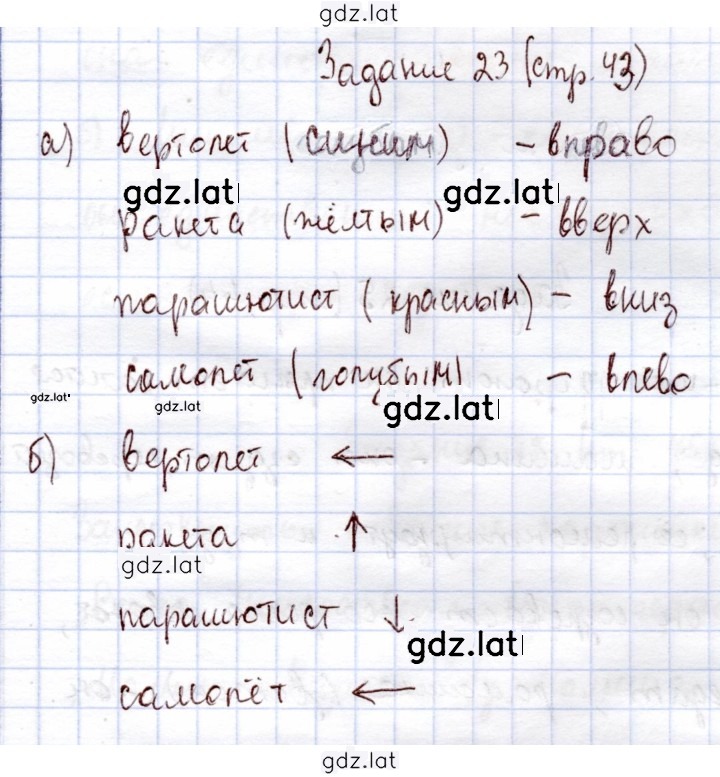 gdz.lat
Задание 23 (стр. 43)
а) вертолёт (синим) - вправо
gdz.lat gdz.lat
ракета (жёлтым) - вверх
парашютист (красным) - вниз
самолёт (голубым) - влево
gdz.lat gdz.lat gdz.lat
б) вертолёт ←
ракета ↑
gdz.lat
парашютист ↓
gdz.lat
самолёт ←
gdz.lat